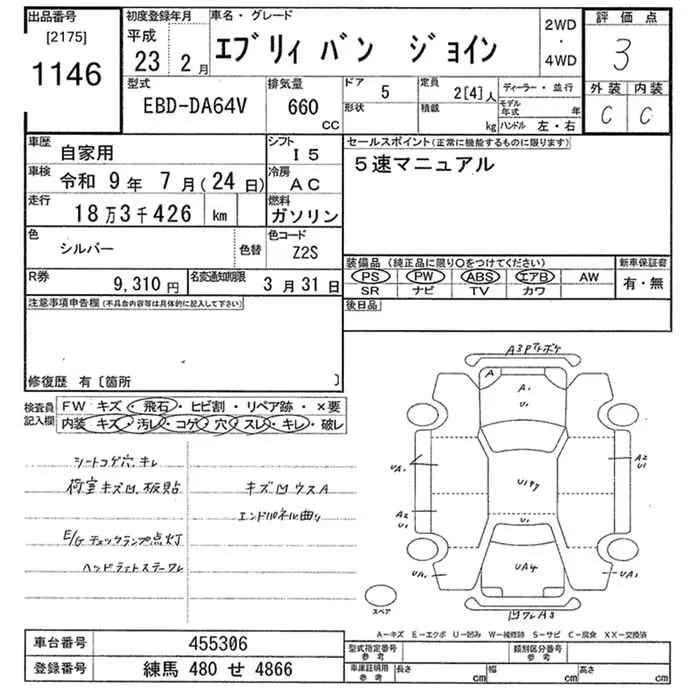 出品番号
[2175]
1146
初度登録年月
平成
23 2月
車名・グレード
エブリィ バン ジョイン
2WD
・
4WD
評価点
3
外装 内装
C C
型式
EBD-DA64V
排気量
660 cc
ドア 5
形状
定員 2[4]人
積載 kg
ディーラー・並行
モデル年式 年
ハンドル 左・右
車歴 自家用
シフト I5
車検 令和 9年 7月(24日)
冷房 AC
走行 18万3千426 km
燃料 ガソリン
色 シルバー 色替
色コード Z2S
R券 9,310円
名変通知期限 3月31日
セールスポイント(正常に機能するものに限ります)
5速マニュアル
装備品(純正品に限り○をつけてください)
PS PW ABS エアB AW
SR ナビ TV カワ
新車保証書
有・無
後日品
注意事項申告欄(不具合内容等は具体的に記入して下さい)
修復歴 有〔箇所 〕
検査員記入欄
FW キズ・飛石・ヒビ割・リペア跡・×要
内装 キズ・汚レ・コゲ・穴・スレ・キレ・破レ
シートコゲ穴キレ
荷室キズ凹板貼
E/Gチェックランプ点灯
ヘッドライトステーワレ
キズ凹ウスA
エンドパネル曲り
A
A1
U1
UA1
A2
U1
A2
U1
U1
UA4
UA1
UA1
凹ワレA3
スペア
A―キズ E―エクボ U―凹み W―補修跡 S―サビ C―腐食 XX―交換済
車台番号 455306
登録番号 練馬 480 せ 4866
型式指定番号 参考
類別区分番号 参考
車庫証明用 参考
長さ cm 幅 cm 高さ cm